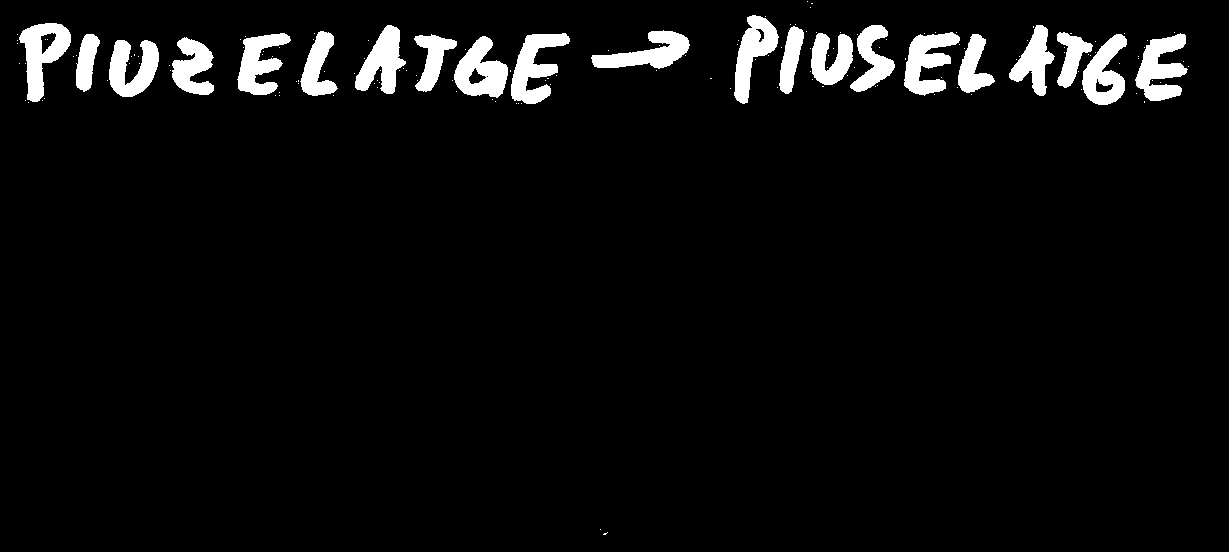 PIUZELATGE → PIUSELATGE